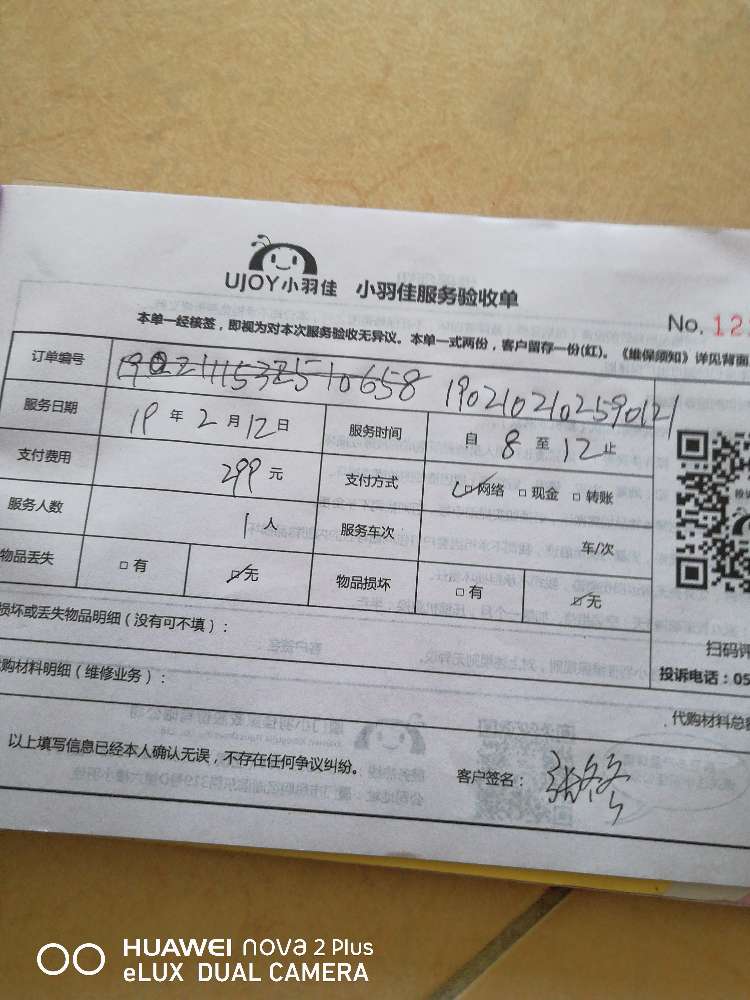 UJOY小羽佳 小羽佳服务验收单
No. 12
本单一经核签，即视为对本次服务验收无异议。本单一式两份，客户留存一份(红)。《维保须知》详见背面
订单编号 1902102102590121
服务日期 19 年 2 月 12 日 服务时间 自 8 至 12 止
支付费用 299 元 支付方式 □网络 □现金 □转账
服务人数 1 人 服务车次 车/次
物品丢失 □有 □无 物品损坏 □有 □无
损坏或丢失物品明细（没有可不填）：
扫码评
购材料明细（维修业务）：
投诉电话：05
代购材料总
以上填写信息已经本人确认无误，不存在任何争议纠纷。 客户签名：
HUAWEI nova 2 Plus
eLUX DUAL CAMERA